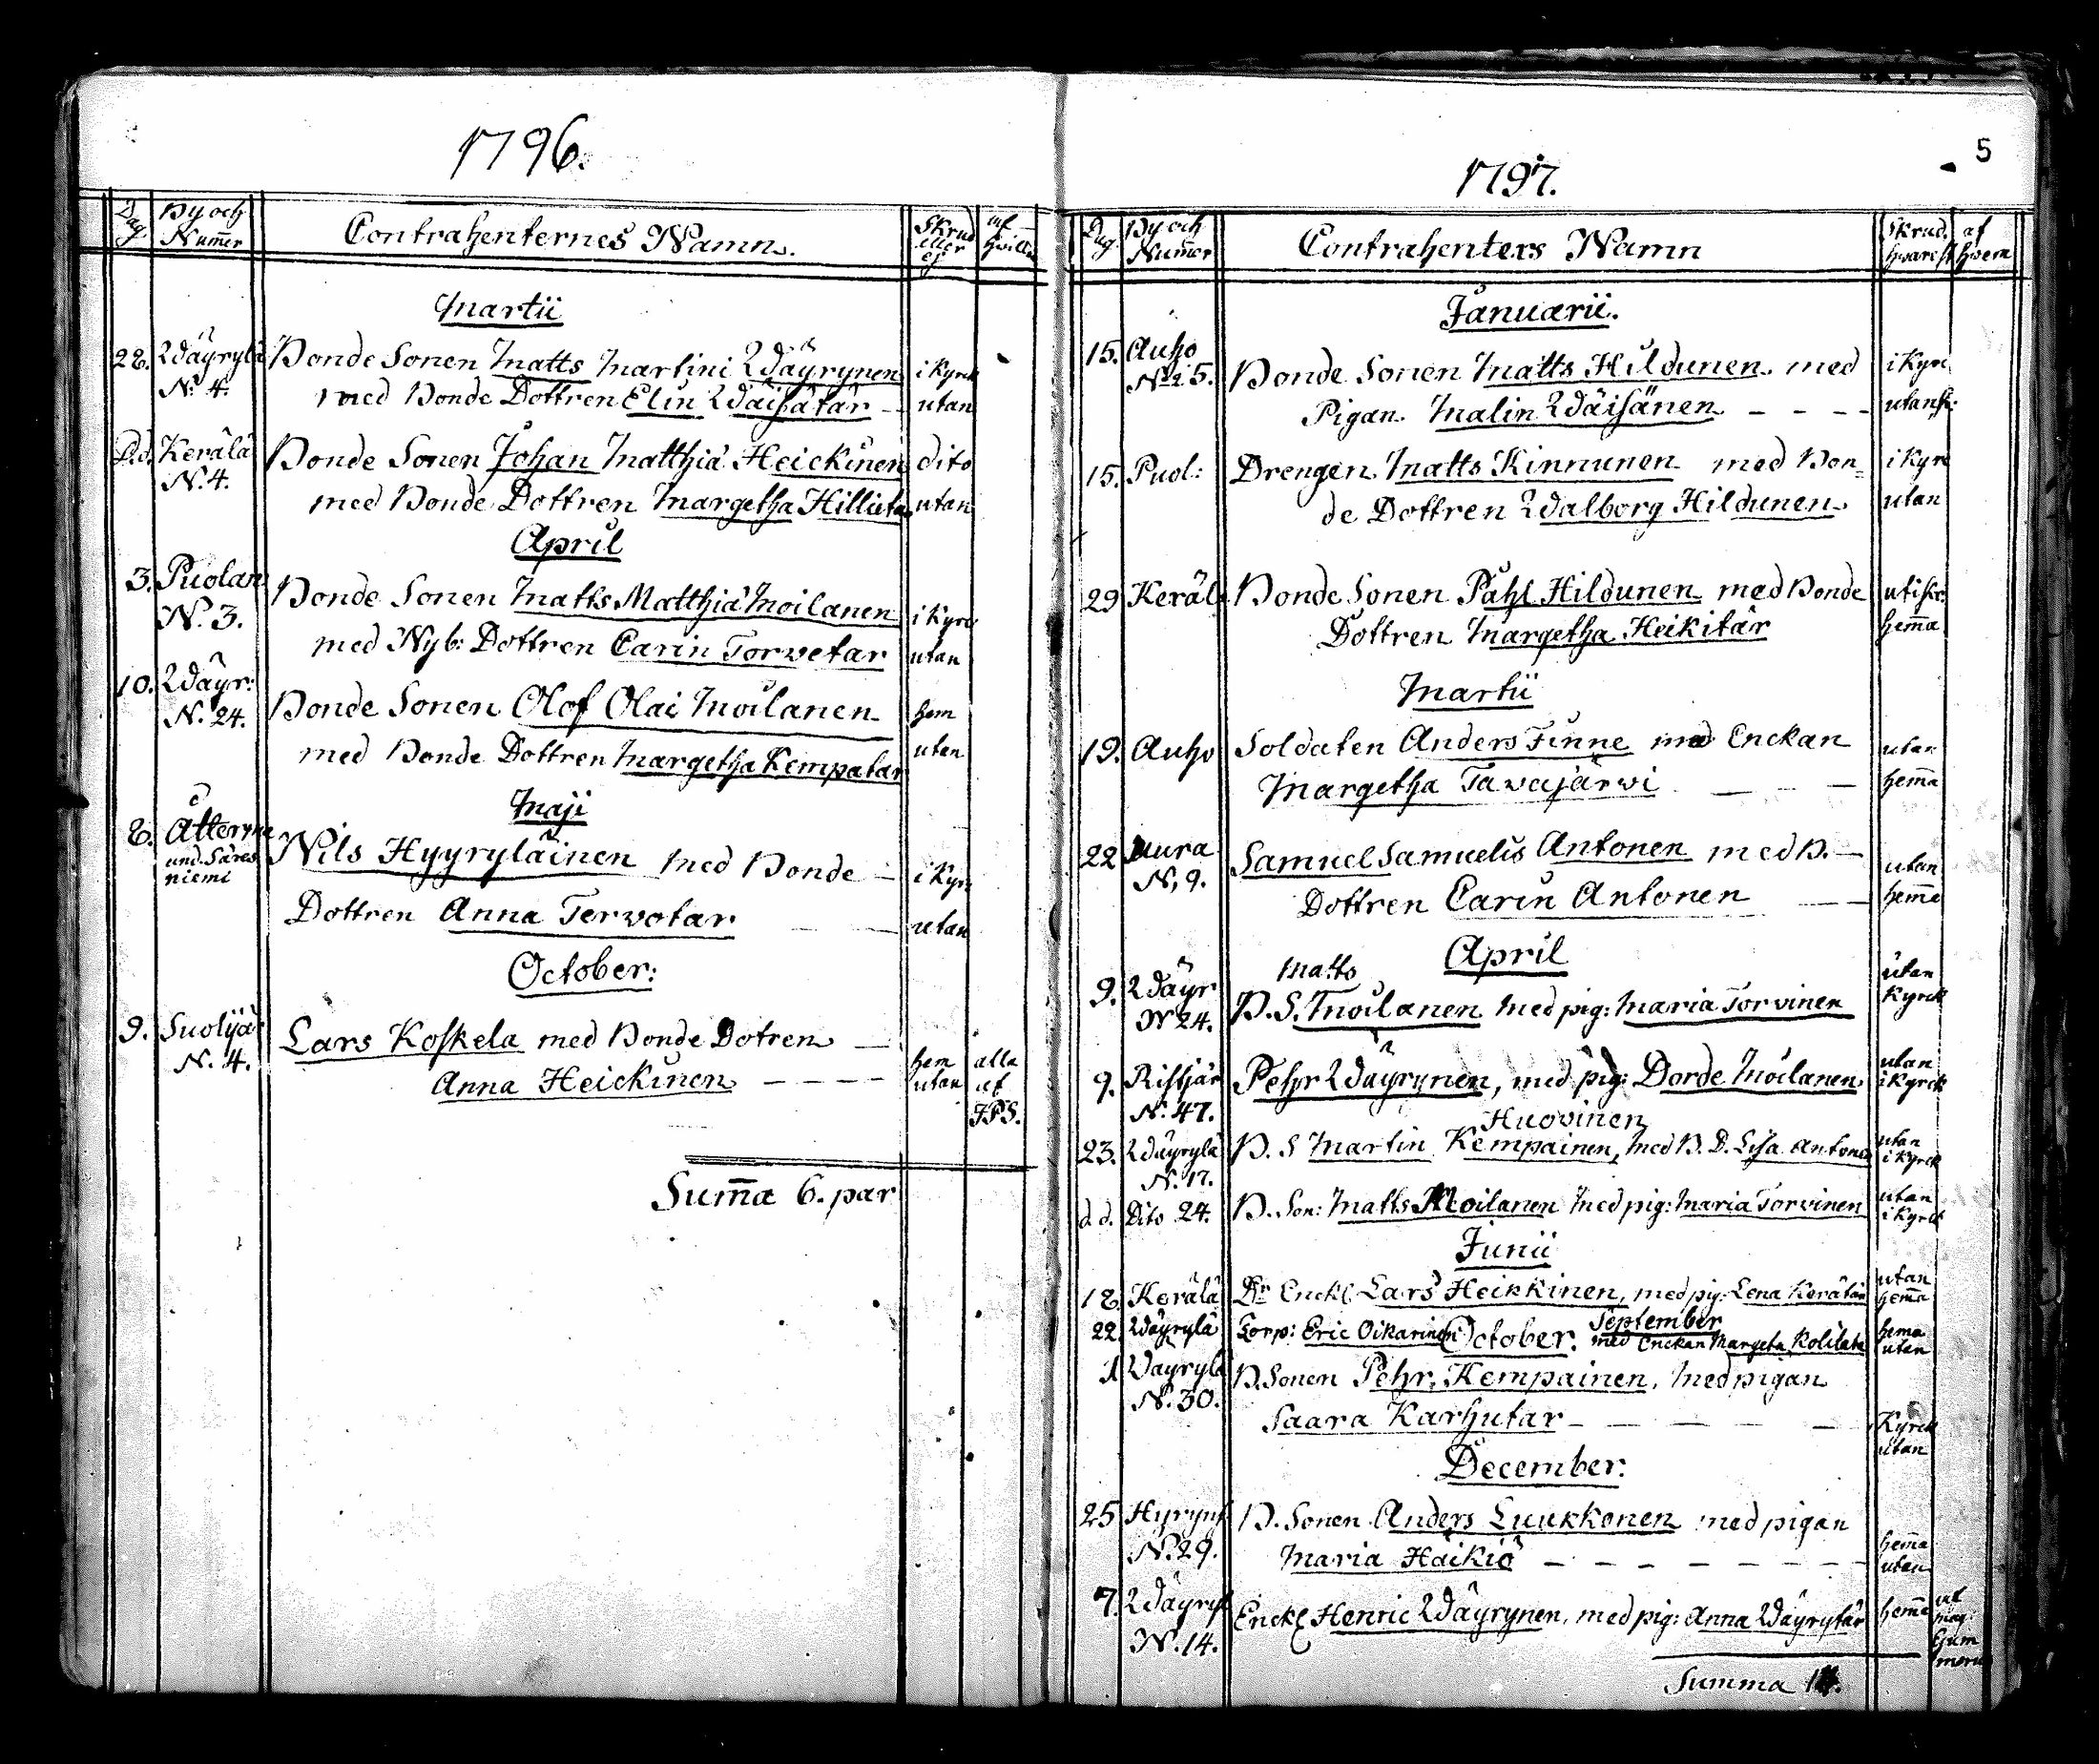 1796.
Dag. By och Nummer Contrahenternes Namn. Skrud eller ej af hvilken
Martii
28. Wäyrylä Bonde Sonen Matts Martini Wäyrynen i Kyrck
N: 4. med Bonde Dottren Elin Wäisätär utan
D.d. Kerälä Bonde Sonen Johan Matthiæ Heickinen dito
N. 4. med Bonde Dottren Margetha Hilluta utan
April
3. Puolan Bonde Sonen Matts Matthiæ Moilanen i Kyrc
N. 3. med Nyb: Dottren Carin Torvetar utan
10. Wäyr: Bonde Sonen Olof Olai Moilanen hem
N. 24. med Bonde Dottren Margetha Kempatar utan
Maji
8. und. Säres Nils Hyyryläinen med Bonde i Kyrc
niemi
Dottren Anna Tervotar utan
October:
9. Suolijä Lars Koskela med Bonde Dotren hem alla
N. 4. Anna Heickinen utan af
JPS.
Sum̄a 6. par
5
1797.
Dag. By och Nummer Contrahenters Namn Skrud. hvarest af hvem
Januarii.
15. Auho Bonde Sonen Matts Huldunen med i Kyrc
N:o 25. Pigan Malin Wäisänen utan
15. Puol: Drengen Matts Kinnunen med Bon= i Kyrc
de Dottren Walborg Hildunen utan
29 Keräl Bonde Sonen Påhl Hildunen med Bonde
Dottren Margetha Heikitär hem̄a
Martii
19. Auho Soldaten Anders Finne med Enckan utan
Margetha Tavajärvi hem̄a
22 Aura Samuel Samuelis Antonen med B. utan
N, 9. Dottren Carin Antonen hem̄a
April
9. Wäyr Matts utan
N 24. B. S. Moilanen med pig: Maria Torvinen Kyrck
9. Ristjär Pehr Wäyrynen, med pig: Dorde Moilanen utan i Kyrck
N: 47. Huovinen
23. Wäyrylä B. S Martin Kempainen, med B. D. Lisa Antonen utan i Kyrck
N. 17.
d. d. Dito 24. B. Son: Matts Moilanen med pig: Maria Torvinen utan i Kyrck
Junii
18 Kerälä Dr Enckl Lars Heikkinen, med pig: Lena Kerätär utan hem̄a
September
22 Wäyrylä Torp: Eric Oikarinen med Enckan Margeta Kolilata hema utan
October.
1 Wäyrylä B. Sonen Pehr Kempainen, med pigan
N. 30. Saara Karhutar Kyrck
utan
December:
25 Hyrynš B. Sonen Anders Luukkonen med pigan
N. 29. Maria Häikiö hem̄a
utan
7. Wäyryl Enckl Henric Wäyrynen, med pig: Anna Wäyrytär hem̄a af
N. 14. mag:
Summa 11.